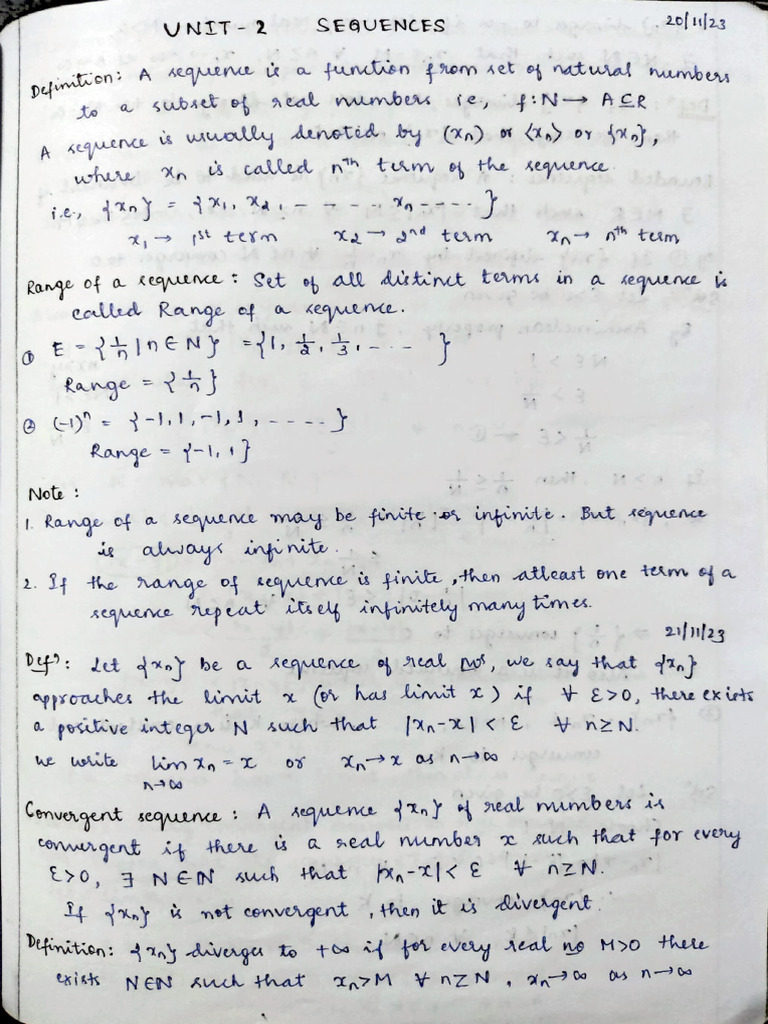 UNIT - 2 SEQUENCES 20/11/23
Definition: A sequence is a function from set of natural numbers
to a subset of real numbers ie, f: N → A ⊆ R
A sequence is usually denoted by (xn) or <xn> or {xn},
where xn is called nth term of the sequence.
i.e, {xn} = {x1, x2, - - - - - xn - - - - }
x1 → 1st term x2 → 2nd term xn → nth term
Range of a sequence : Set of all distinct terms in a sequence is
called Range of a sequence.
① E = {1/n | n ∈ N} = {1, 1/2, 1/3, - - - - }
Range = {1/n}
② (-1)^n = {-1, 1, -1, 1, - - - - - }
Range = {-1, 1}
Note :
1. Range of a sequence may be finite or infinite. But sequence
is always infinite.
2. If the range of sequence is finite, then atleast one term of a
sequence repeat itself infinitely many times.
21/11/23
Defn : Let {xn} be a sequence of real nos, we say that {xn}
approaches the limit x (or has limit x) if ∀ ε>0, there exists
a positive integer N such that |xn-x| < ε ∀ n≥N.
we write lim xn = x or xn → x as n→∞
n→∞
Convergent sequence : A sequence {xn} of real numbers is
convergent if there is a real number x such that for every
ε>0, ∃ N∈N such that |xn-x| < ε ∀ n≥N.
If {xn} is not convergent, then it is divergent.
Definition: {xn} diverges to +∞ if for every real no M>0 there
exists N∈N such that xn>M ∀ n≥N, xn→∞ as n→∞